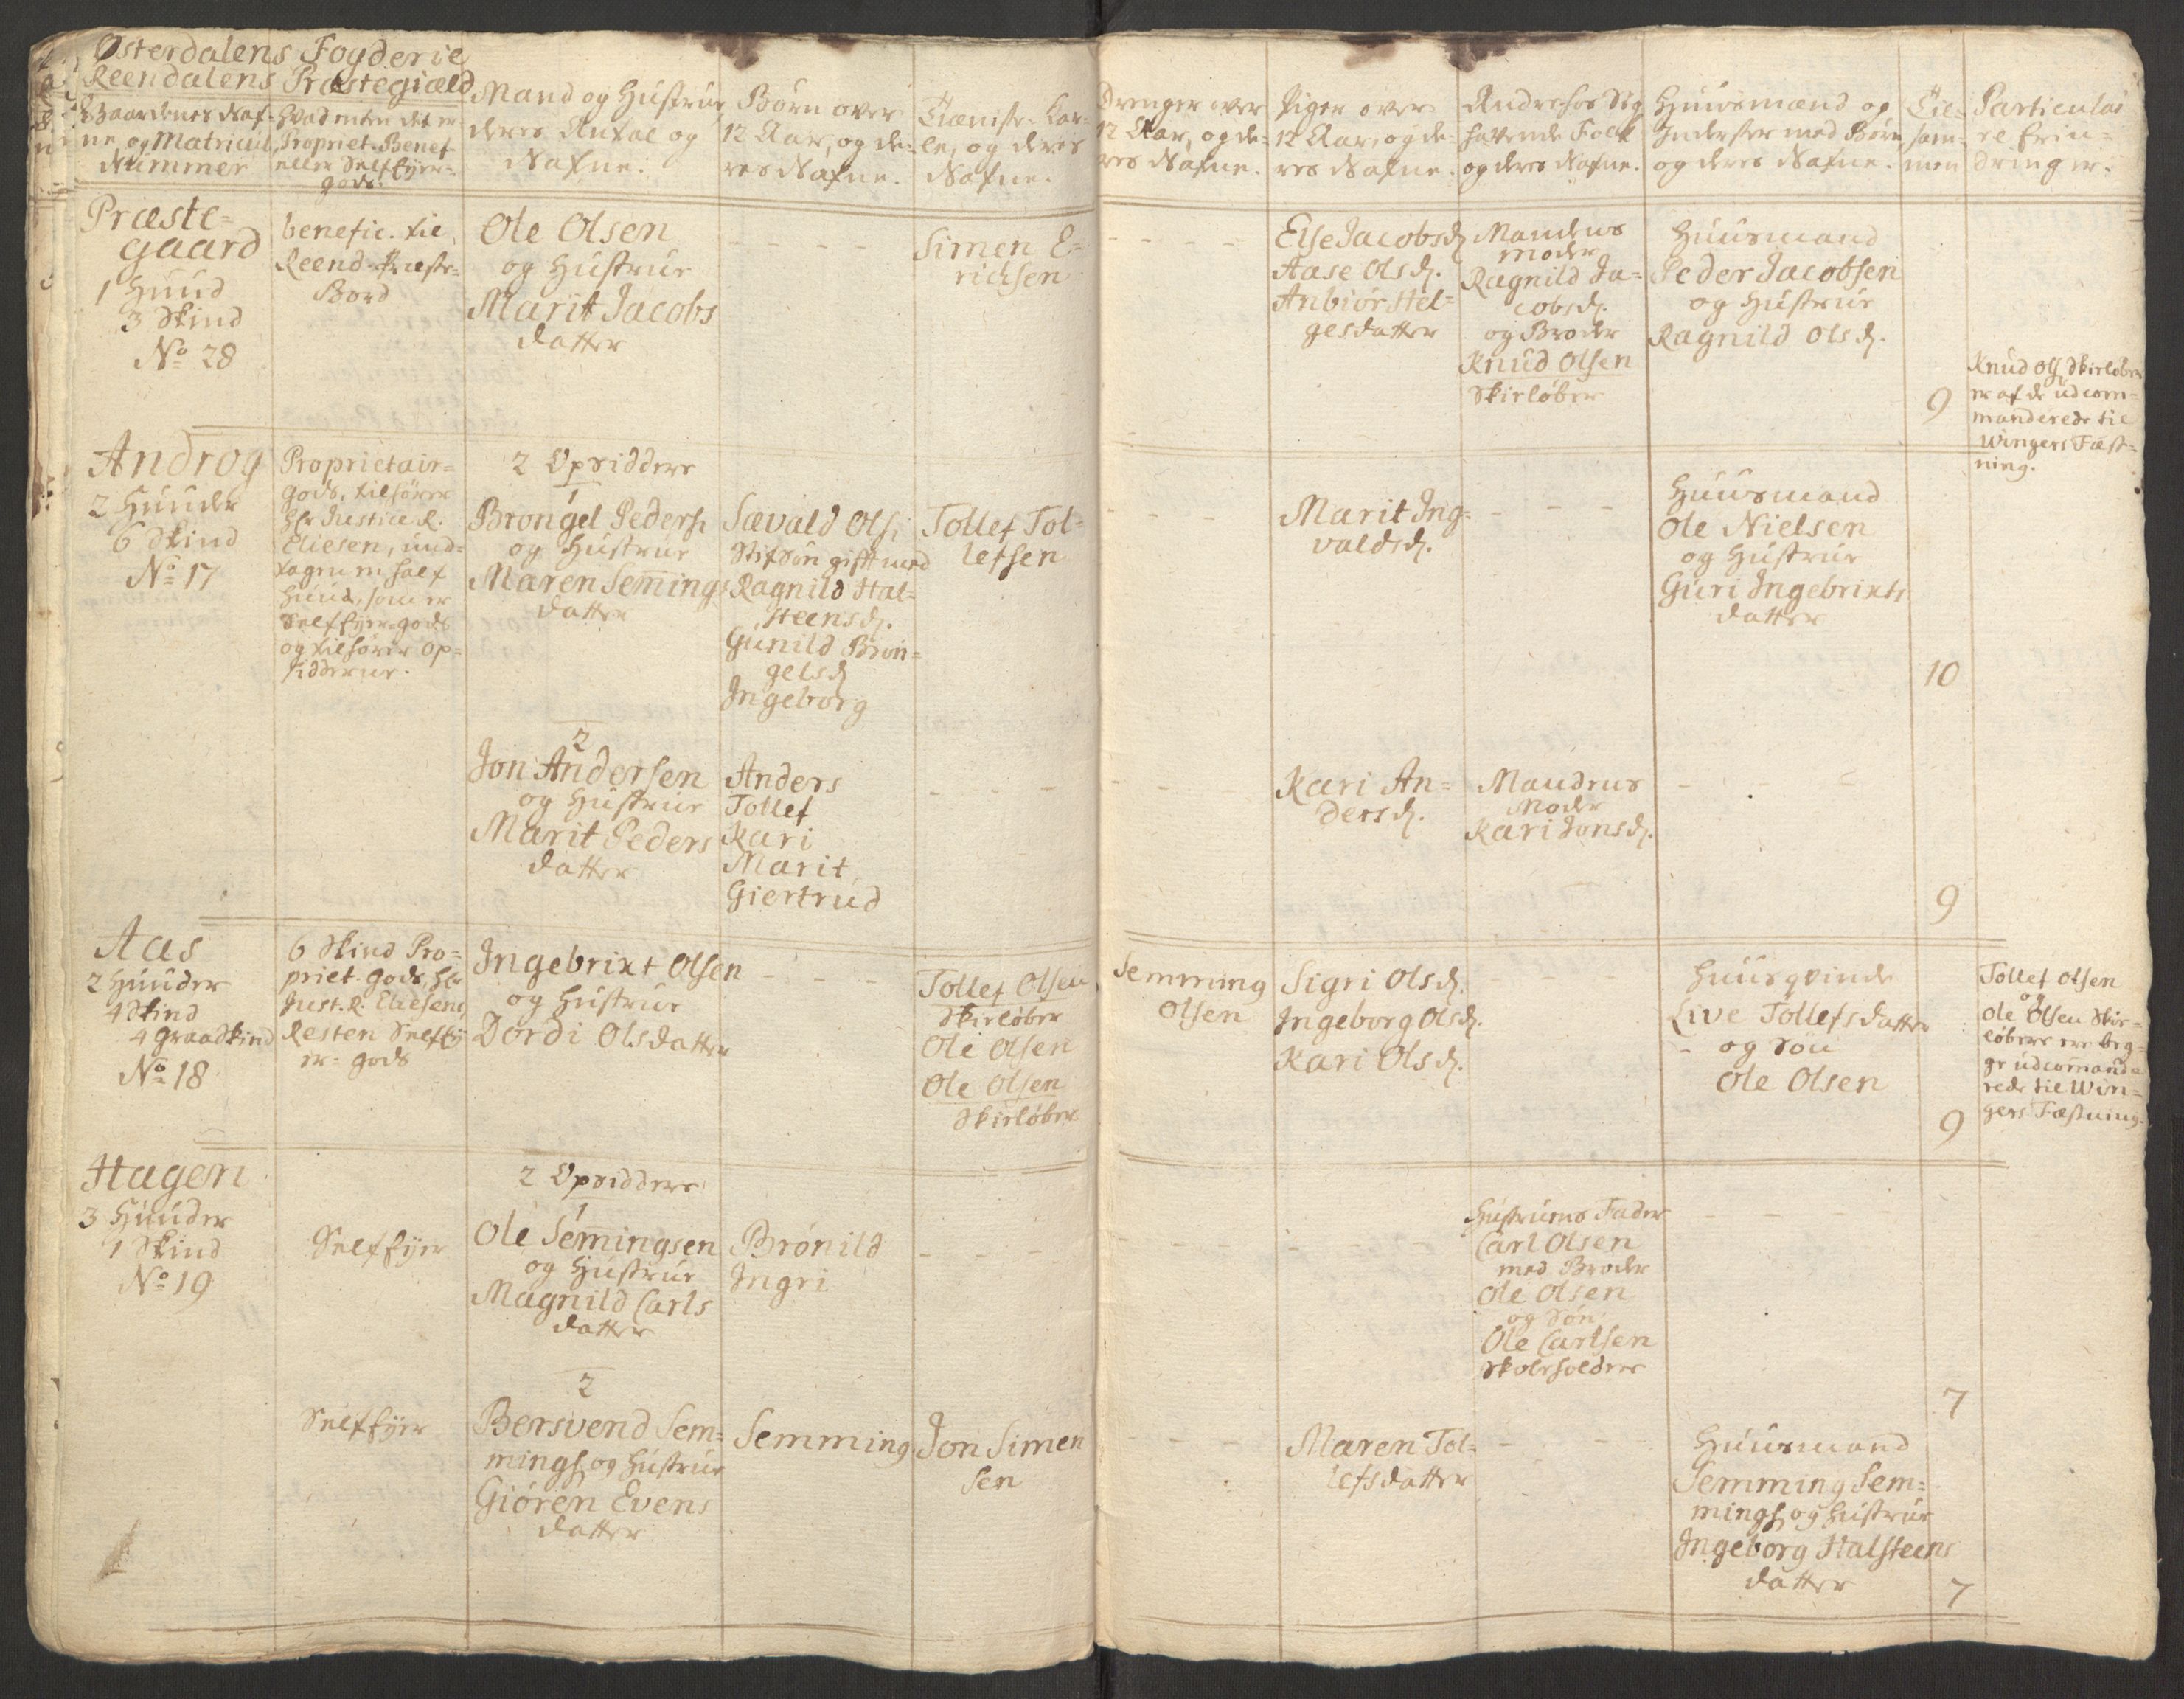 Østerdalens Fogderie
Reendalens Præstegiæld
Gaardenes Naf-
ne, og Matricul
Nummer
Hvad enten det er
Propriet-Benef-
eller Selfeyer-
gods.
Mand og Hustrue,
deres Antal og
Nafne.
Børn over
12 Aar, og de-
res Nafne.
Tieniste-Kar-
le, og deres
Nafne.
Drenger over
12 Aar, og de-
res Nafne.
Piger over
12 Aar, og de-
res Nafne.
Andre hos Sig
havende Folk
og deres Nafne.
Huusmænd og
Inderster med Børn
og deres Nafne.
Til-
sam-
men
Particulai
re Erin-
dringer.
Præste-
gaard
1 Huud
3 Skind
No 28
benefic. til
Reend. Præste-
Bord
Ole Olsen
og Hustrue
Marit Jacobs
datter
Simen E-
richsen
Else Jacobsd.
Aase Olsd.
Anbiør Hel-
gesdatter
Mandens
Moder
Ragnild Ja-
cobsd.
og Broder
Knud Olsen
Skieløber
Huusmand
Peder Jacobsen
og Hustrue
Ragnild Olsd.
9
Knud Ols. Skieløber
er af de udcom-
manderede til
Wingers Fæst-
ning.
Androg
2 Huuder
6 Skind
No 17
Proprietair-
gods, tilhører
Hr Justice R.
Eliesen, und-
tagen en half
Huud, som er
Selfeyer-gods
og tilhører Op-
sidderne.
2 Opsiddere
1
Brongel Peders.
og Hustrue
Maren Semings
datter
Sævald Ols.
Stifsøn gift med
Ragnild Hal-
steensd.
Gunild Bron-
gelsd
Ingeborg
Tollef Tol-
lefsen
Marit Ing-
valdsd.
Huusmand
Ole Nielsen
og Hustrue
Guri Ingebrixts
datter
10
2
Jon Andersen
og Hustrue
Marit Peders
datter
Anders
Tollef
Kari
Marit
Giertrud
Kari An-
dersd.
Mandens
Moder
Kari Jonsd.
9
Aas
2 Huuder
4 Skind
4 Graaskind
No 18
6 Skind Pro-
priet. gods, Hr
Just. R. Eliesens,
Resten Selfey
er-gods
Ingebrixt Olsen
og Hustrue
Dordi Olsdatter
Tollef Olsen
Skieløber
Ole Olsen
Ole Olsen
Skieløber
Semming
Olsen
Sigri Olsd.
Ingeborg Olsd.
Kari Olsd.
Huusqvinde
Live Tollefsdatter
og Søn
Ole Olsen
9
Tollef Olsen
og
Ole Olsen Skie-
løbere ere beg-
ge udcomande
rede til Win-
gers Fæstning.
Hagen
3 Huuder
1 Skind
No 19
Selfeyer
2 Opsiddere
1
Ole Semingsen
og Hustrue
Magnild Carls
datter
Brønild
Ingri
Hustruens Fader
Carl Olsen
med Broder
Ole Olsen
og Søn
Ole Carlsen
Skoleholder
7
Selfeyer
2
Bersvend Sem-
mings. og Hustrue
Giøren Evens
datter
Semming
Jon Simen
sen
Maren Tol-
lefsdatter
Huusmand
Semming Sem-
mings. og Hustrue
Ingeborg Halsteens
datter
7